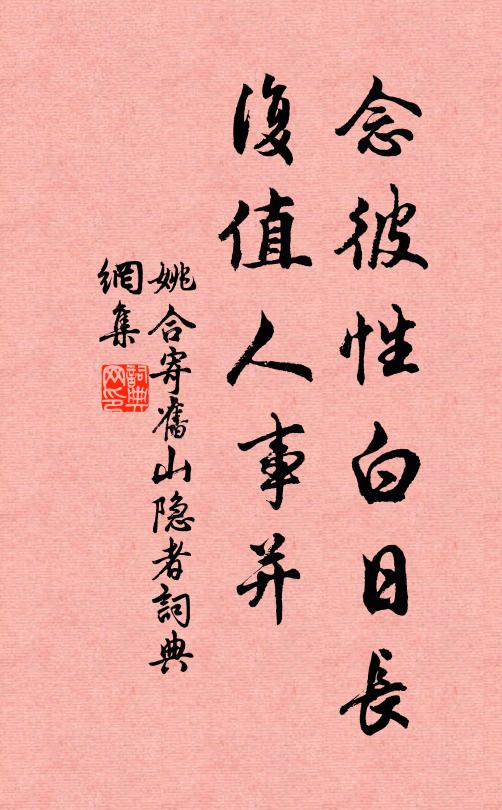 念彼性白日長
復值人事并
姚合寄舊山隐者詞典
網集
詞典
网印